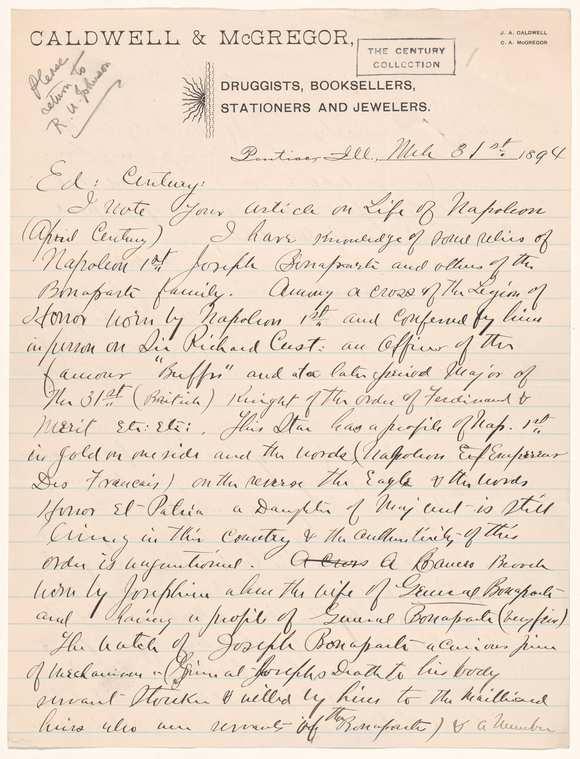 CALDWELL & McGREGOR,
J. A. CALDWELL
C. A. McGREGOR
THE CENTURY
COLLECTION
Please
return to
R. U. Johnson
DRUGGISTS, BOOKSELLERS,
STATIONERS AND JEWELERS.
Pontiac, Ill., Mch 31st 1894
Ed: Century:
I note your article on Life of Napoleon
(April Century) I have knowledge of some relics of
Napoleon 1st Joseph Bonaparte and others of the
Bonaparte family. Among a cross of the Legion of
Honor worn by Napoleon 1st and confered by him
in person on Sir Richard Cust: an officer of the
famour "Buffs" and at a later period Major of
The 31st (British) Knight of the order of Ferdinand &
Merit Etc: Etc:, This Star has a profile of Nap. 1st
in gold on one side and the words (Napoleon Emperour
Des Francais) on the reverse the Eagle & the words
Honor Et Patria a Daughter of Maj Cust is still
living in this country & the authenticity of this
order is unquestioned. A Cross A Cameo Brooch
worn by Josephine when the wife of General Bonaparte
and having a profile of General Bonaparte (very fine)
The watch of Joseph Bonaparte a curious piece
of mechanism (Given at Josephs Death to his body
servant & willed by him to the Mailliard
heirs also were servants of the Bonapartes) & a number